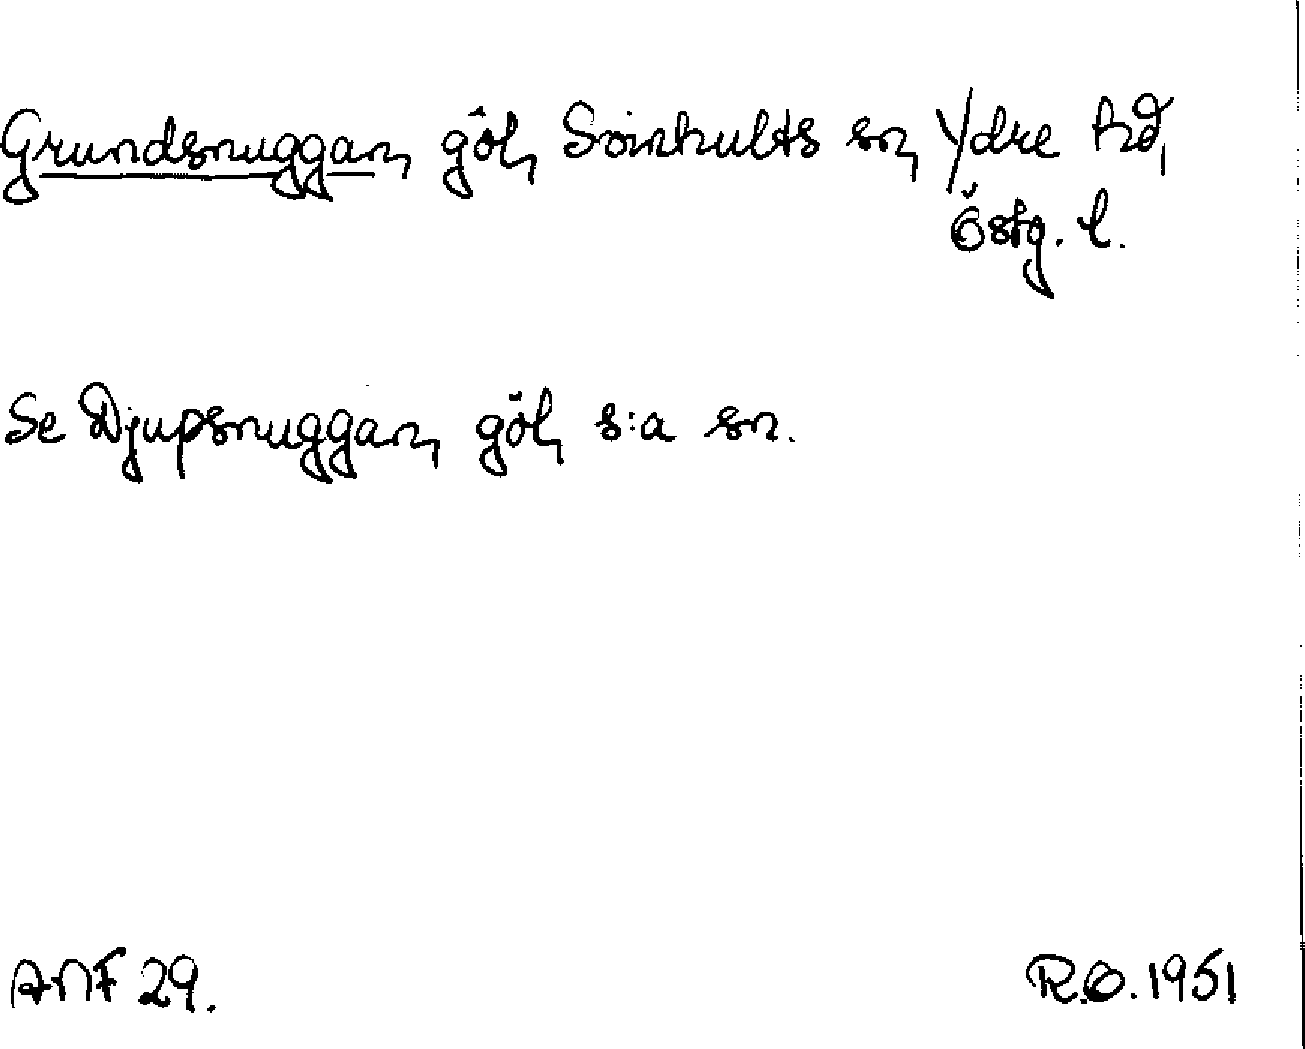 Grundsnuggan, göl, Svinhults sn, Ydre hd,
Östg. l.
Se Djupsnuggan, göl, s:a sn.
ANF 29. R.O. 1951